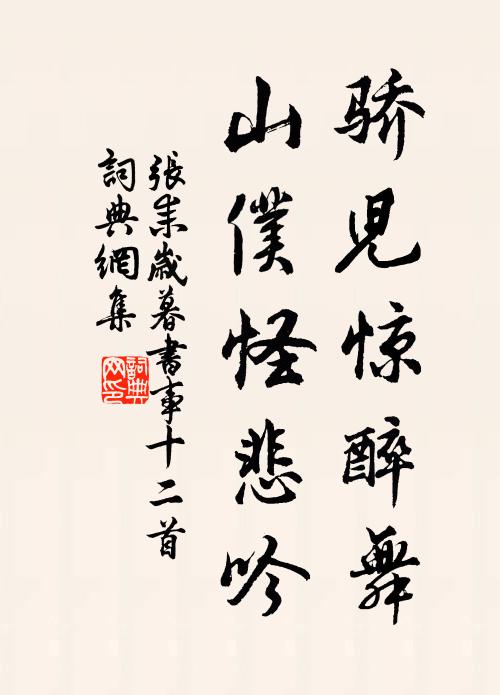 骄児惊醉舞
山僕怪悲吟
張耒歲暮書事十二首
詞典網集
詞典网印